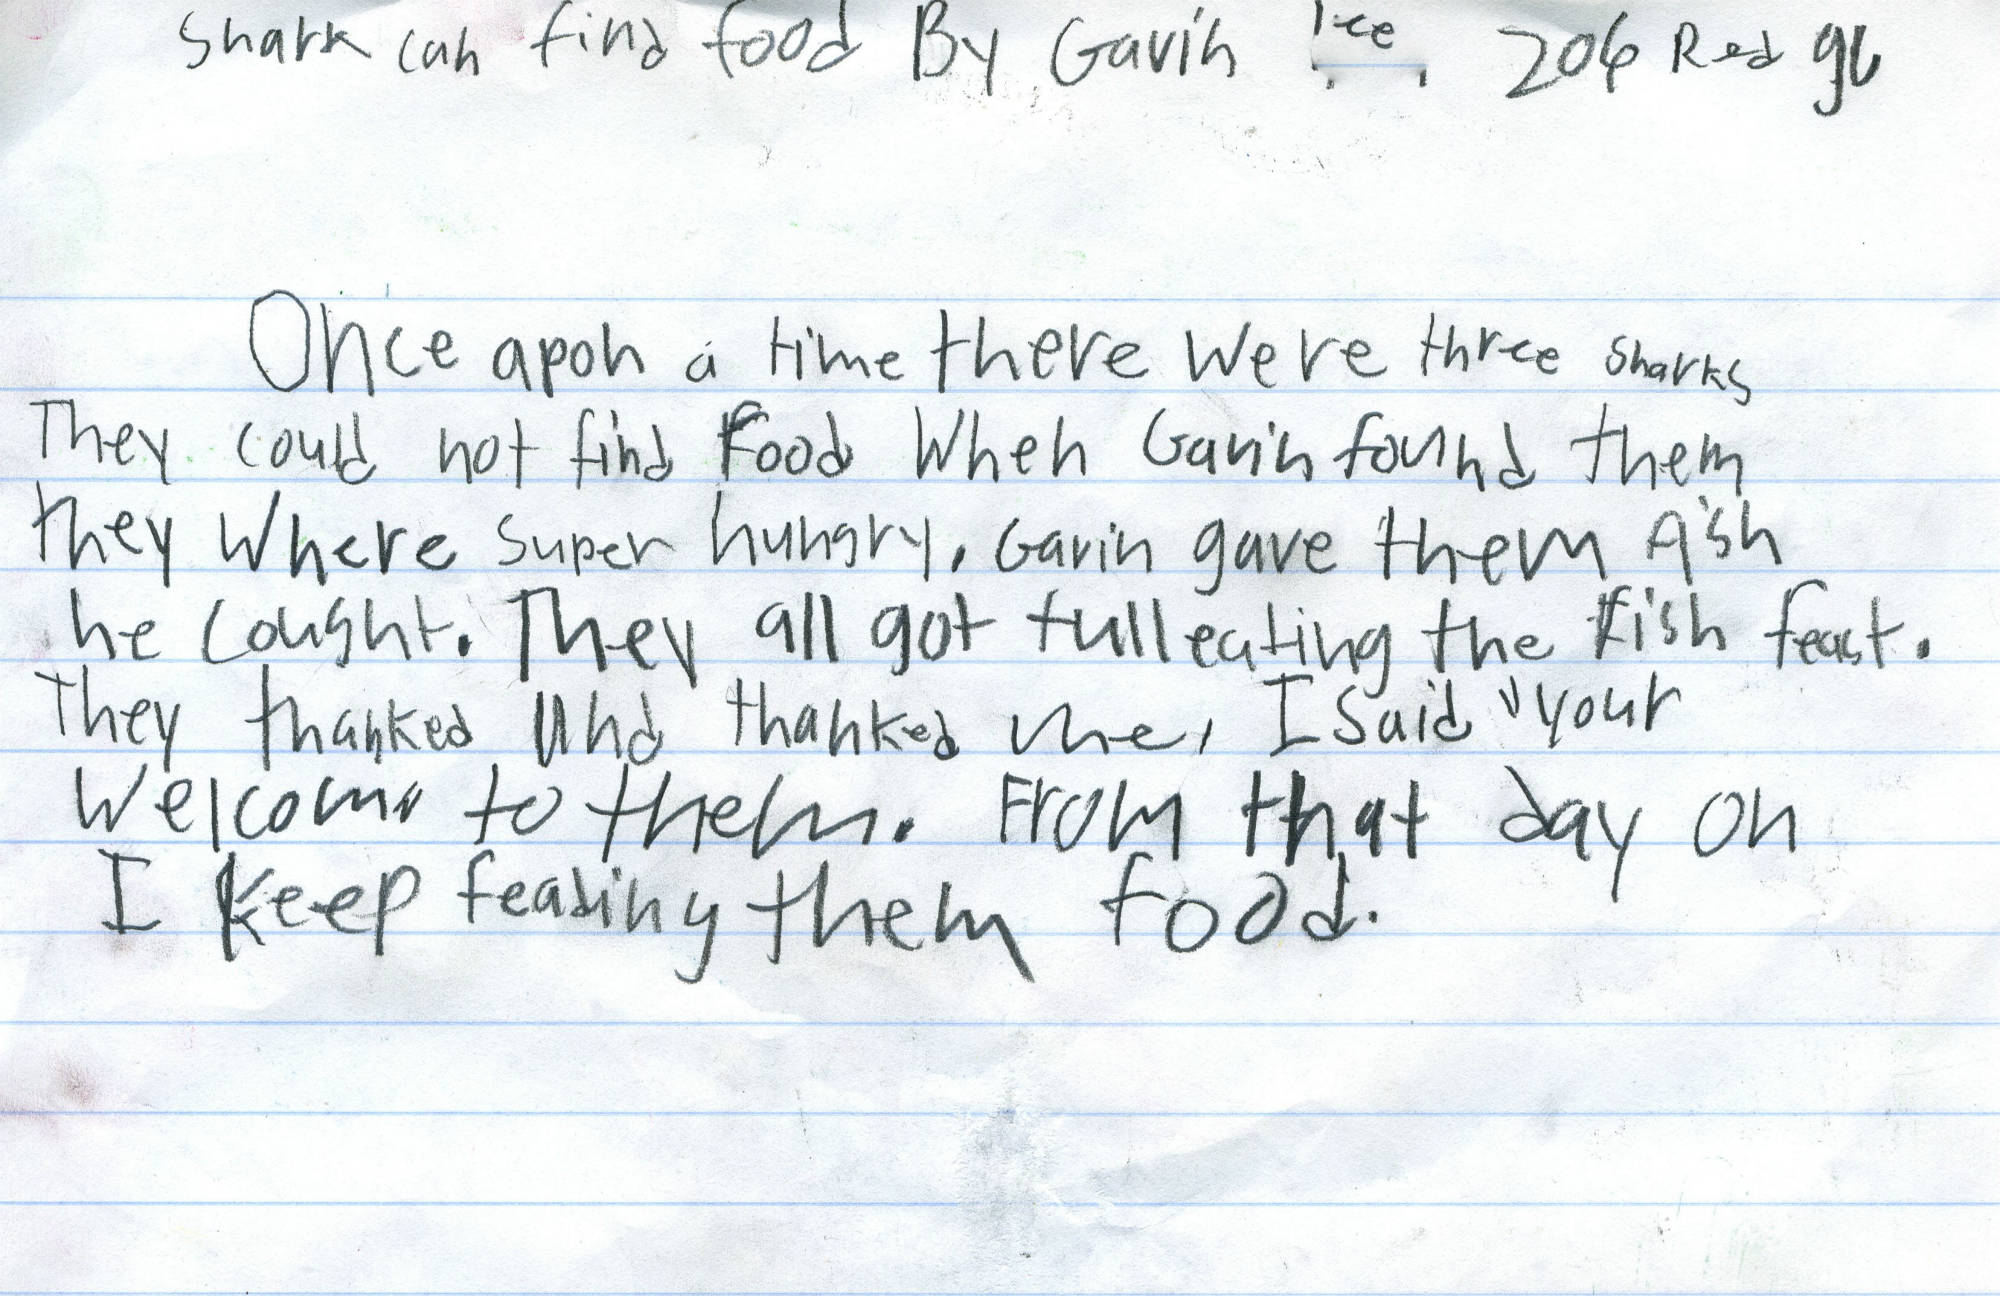 Shark can find food By Gavin 206 Red
Once apon a time there were three sharks
They could not find Food When Gavin found them
they Where super hungry. Gavin gave them fish
he cought. They all got full eating the fish feast.
They thanked und thanked me, I said "your
Welcome to them. From that day on
I keep feading them food.